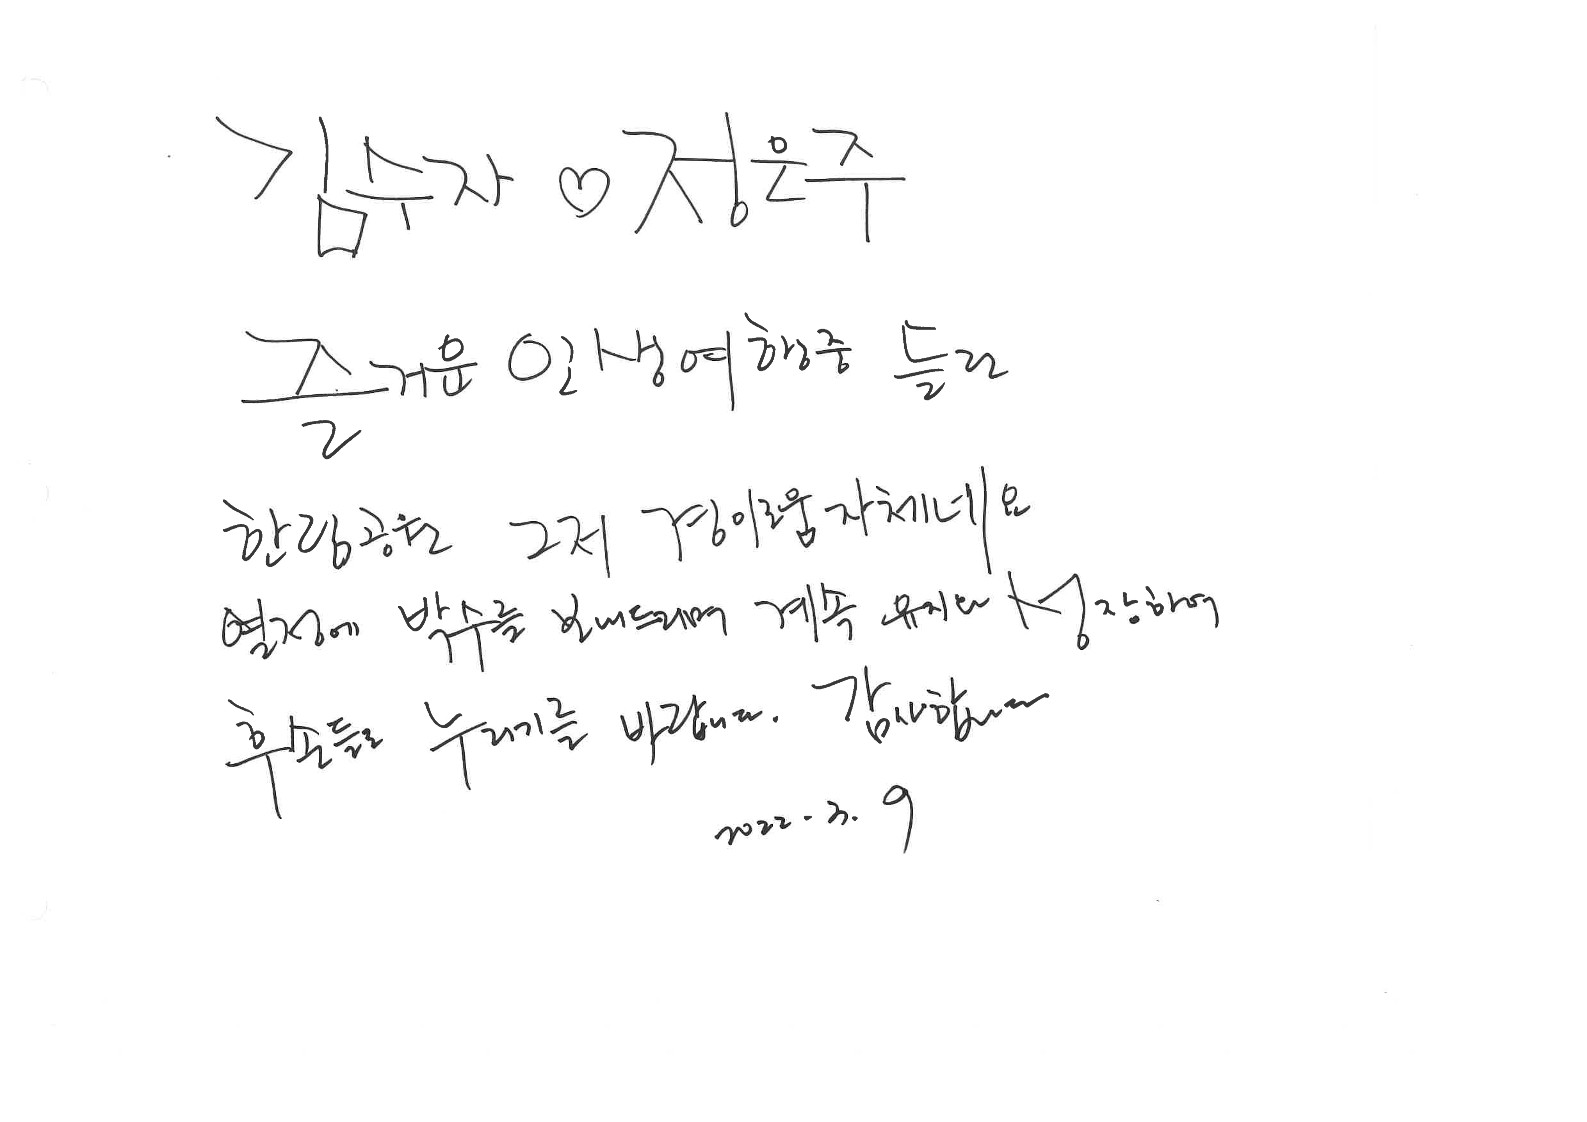 김수자 ♡ 정은주
즐거운 인생여행중 들른
한림공원 그저 경이로움 자체네요
열정에 박수를 보내드리며 계속 유지되 성장하여
후손들도 누리기를 바랍니다. 감사합니다
2022. 3. 9